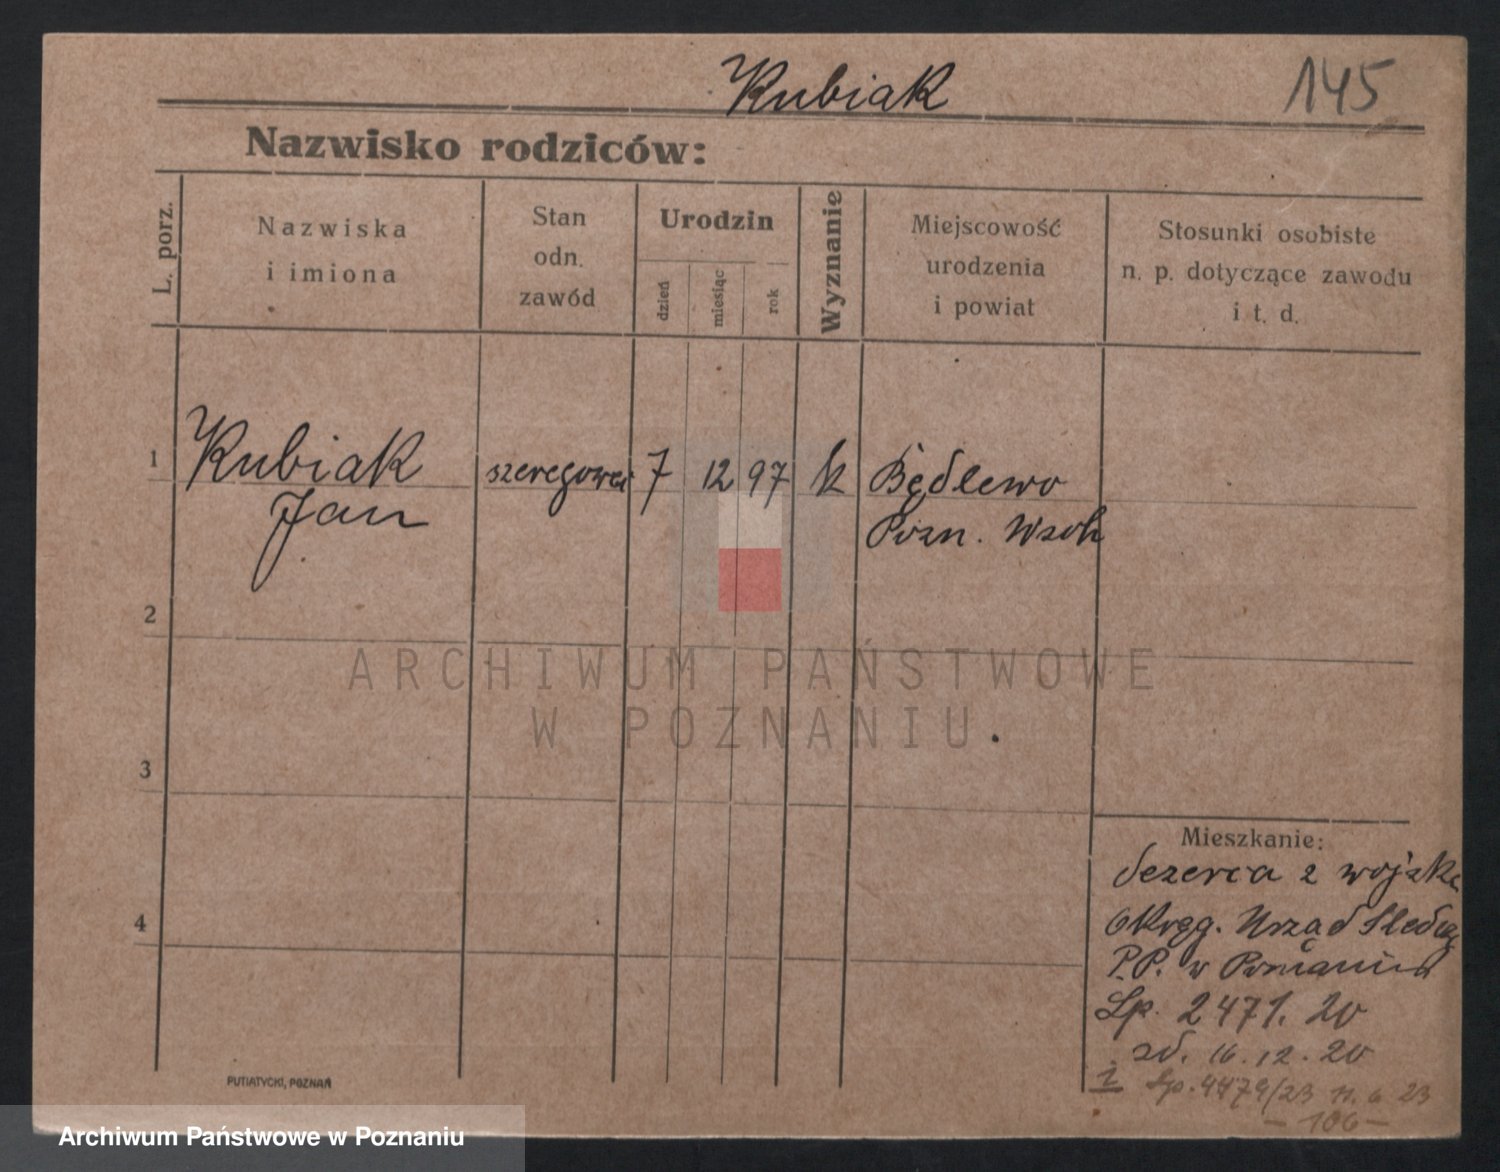 Kubiak
145
Nazwisko rodziców:
L. porz.
Nazwiska
i imiona
Stan
odn.
zawód
Urodzin
dzień
miesiąc
rok
Wyznanie
Miejscowość
urodzenia
i powiat
Stosunki osobiste
n. p. dotyczące zawodu
i t. d.
1
Kubiak
Jan
szeregowci
7
12
97
k
Będlewo
Pozn. Wsch
2
3
4
ARCHIWUM PAŃSTWOWE
W POZNANIU
Mieszkanie:
dezerca z wojska
Okręg. Urząd Śledcz
P.P. w Poznaniu
Lp. 2471. 20
zd. 16.12.20
1 Lp. 4479/23 11. 6 23
- 106 -
PUTIATYCKI, POZNAŃ
Archiwum Państwowe w Poznaniu